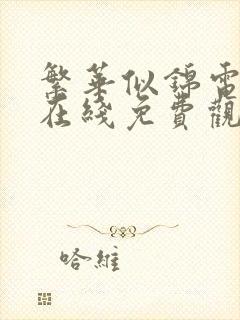 繁華似錦電
在綫免費觀
哈維